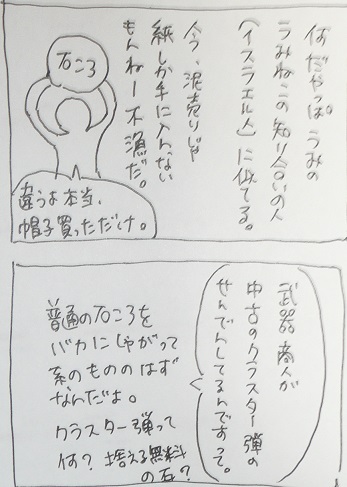 何だやっぱ。うみの
うみねこの知り合いの人
(イスラエル人)に似てる。
今、泥売りじゃ
紙しか手に入んない
もんねー不漁だ。
石ころ
違うよ本当、
帽子買っただけ。
武器商人が
中古のクラスター弾の
せんでんしてるんですって。
普通の石ころを
バカにしゃがって
系のもののはず
なんだよ。
クラスター弾って
何?捨える無料
の石?